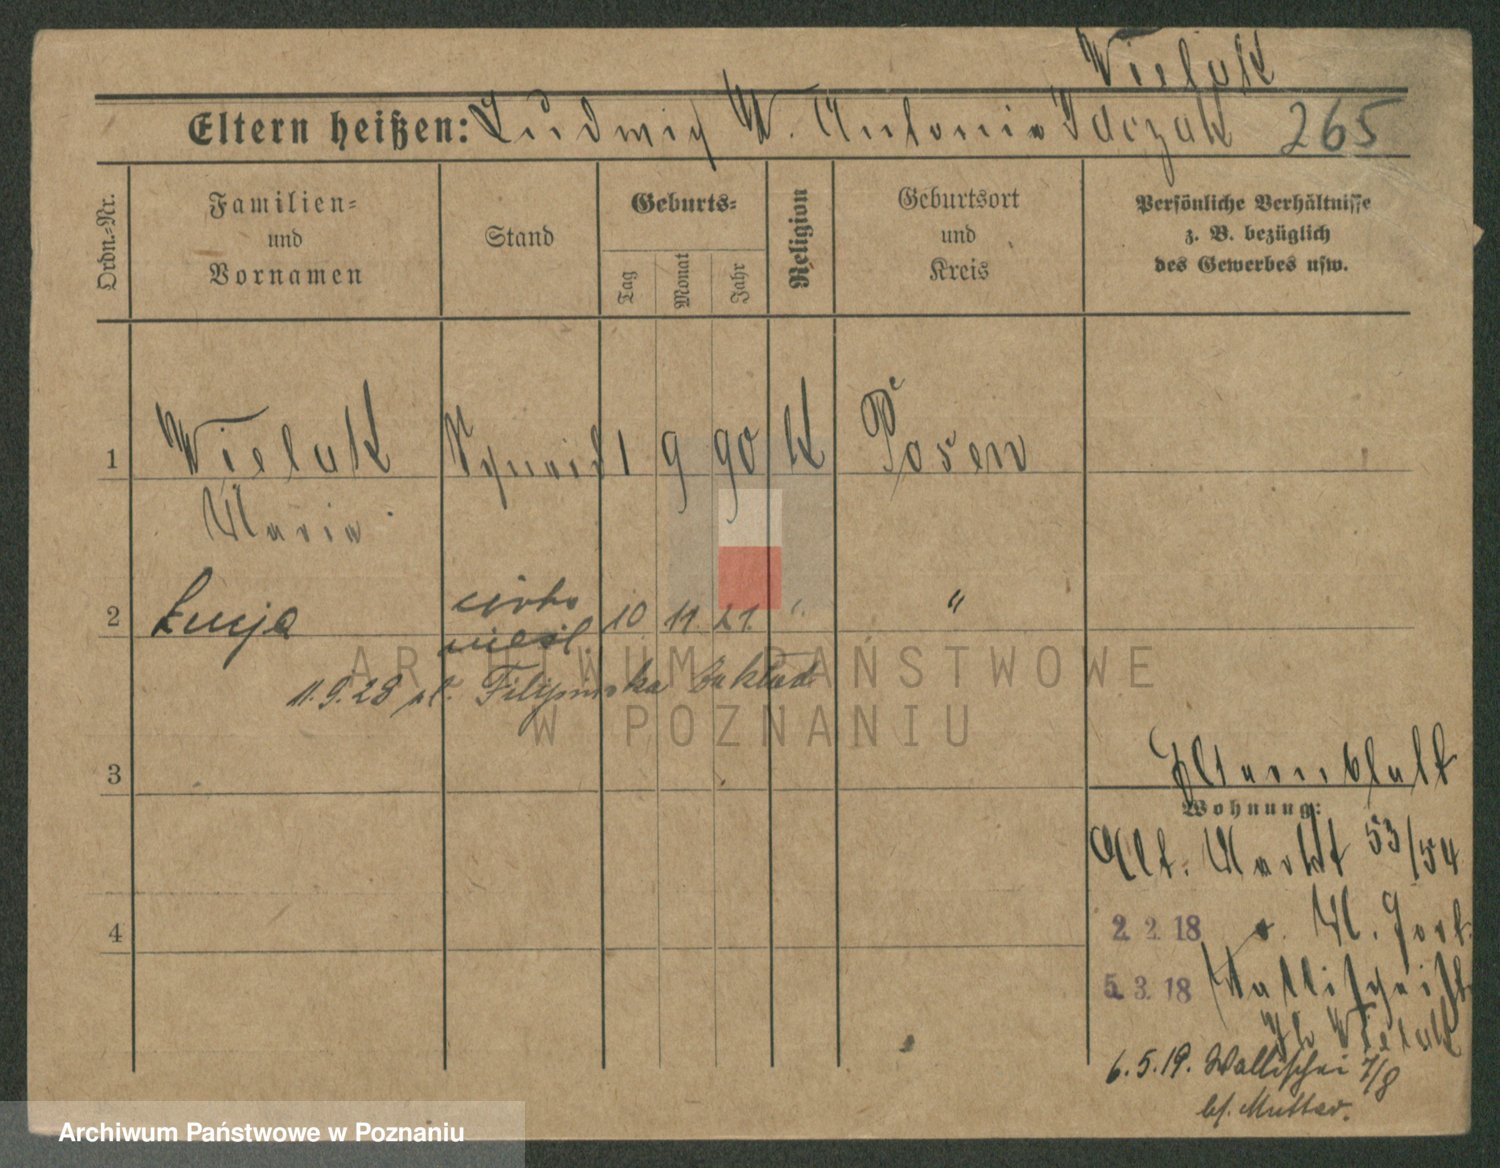 Wielak
Eltern heißen: Ludwig W. Antonia 265
Ordn.-Nr.
Familien-
und
Vornamen
Stand
Geburts-
Tag
Monat
Jahr
Religion
Geburtsort
und
Kreis
Persönliche Verhältnisse
z. B. bezüglich
des Gewerbes usw.
1 Wielak 1 9 90 K Posen
Maria
2 Łucja córka 10 11 21. " "
nieśl.
11.9.28 pl. Filipińska
3
Wohnung:
Alt. Markt 53/54
4
2. 2. 18 v. M.
5. 3. 18 Wallischei
Wielak
6.5.19. Wallischei 7/8
bf. Mutter.
ARCHIWUM PAŃSTWOWE
W POZNANIU
Archiwum Państwowe w Poznaniu